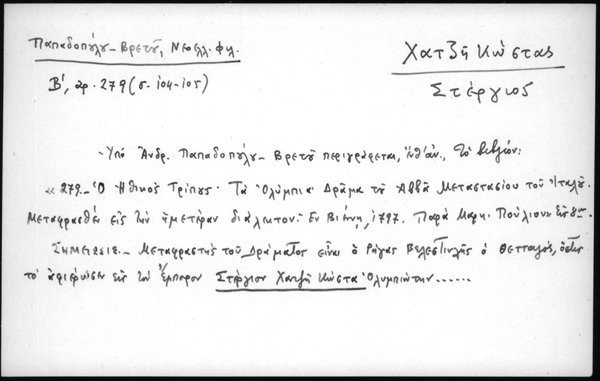 Παπαδοπούλου-Βρετοῦ, Νεοελλ. φιλ.
Β', ἀρ. 279 (σ. 104-105)
Χατζῆ Κώστας
Στέργιος
-Ὑπὸ Ἀνδρ. Παπαδοπούλου-Βρετοῦ περιγράφεται, ἔνθ' ἀν., τὸ βιβλίον:
«279.- Ὁ Ἠθικὸς Τρίπους. Τὰ Ὀλύμπια· Δρᾶμα τοῦ Ἀββᾶ Μεταστασίου τοῦ Ἰταλοῦ.
Μεταφρασθὲν εἰς τὴν ἡμετέραν διάλεκτον. Ἐν Βιέννῃ, 1797. Παρὰ Μαρκ. Πούλιου. Εἰς 8ον
Σημείωσις.- Μεταφραστὴς τοῦ Δράματος εἶναι ὁ Ῥήγας Βελεστινλῆς ὁ Θετταλός, ὅστις
τὸ ἀφιέρωσεν εἰς τὸν ἔμπορον Στέργιον Χατζῆ Κώστα Ὀλυμπιώτην......